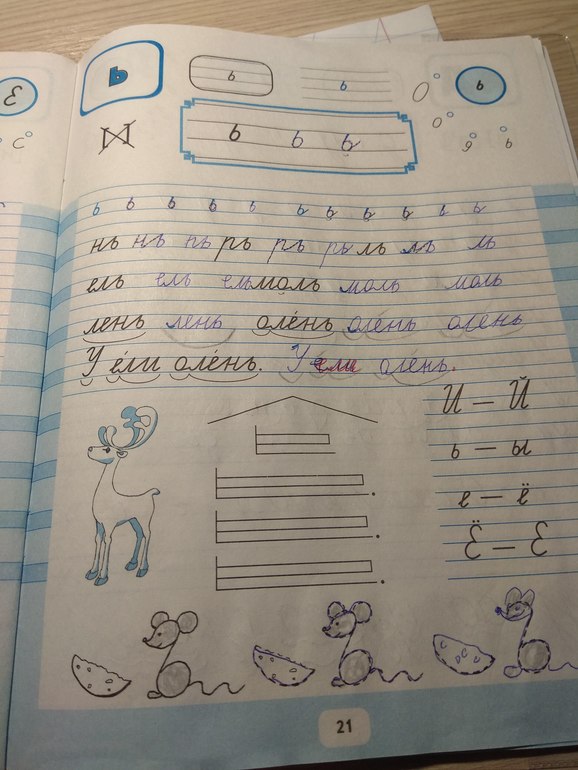 Ɛ
c
ь
ь
ь
о
о
э
ь
ь
ь ь ь
ь ь ь ь ь ь ь ь ь ь ь
нь нь нь рь рь рь ль ль ль
ель ель ель моль моль моль
лень лень олень олень олень
У ели олень. У ели олень.
И – Й
ь – ы
е – ё
Ё – Е
21